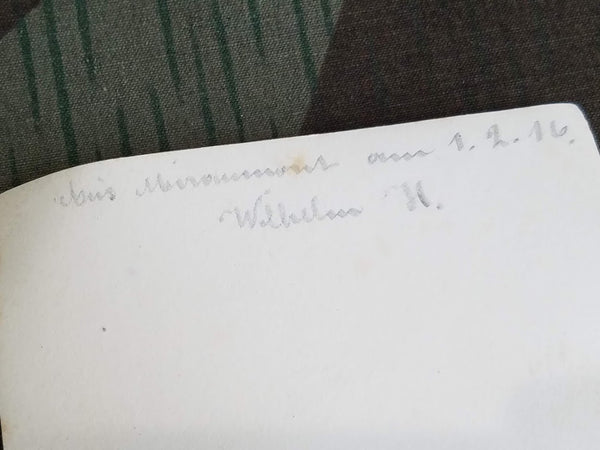 Aus Miraumont am 1.2.16.
Wilhelm H.